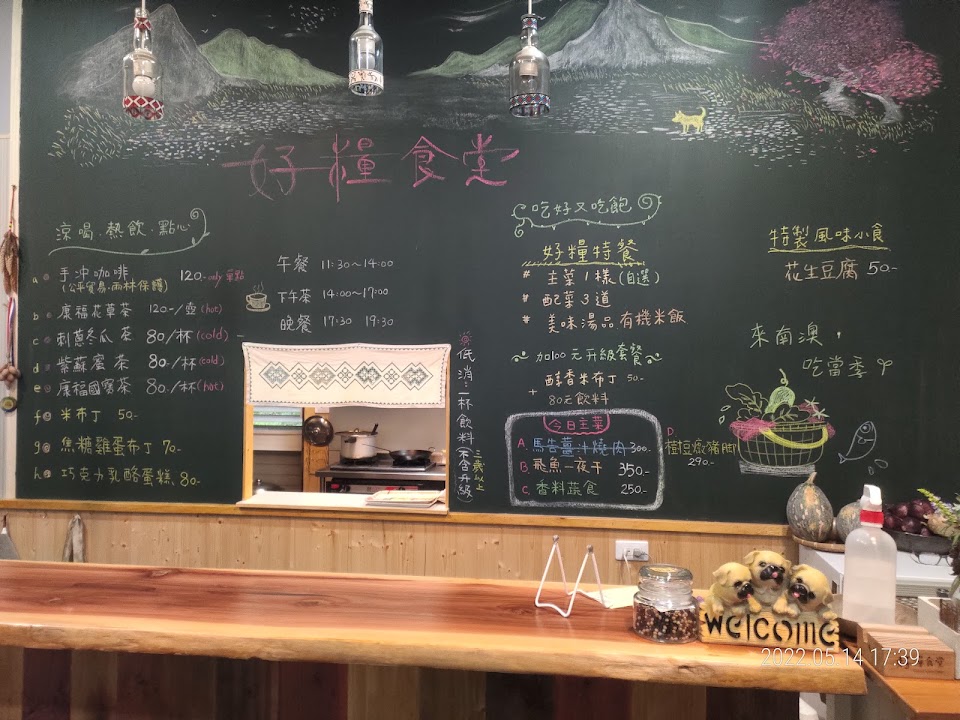 好糧食堂
涼喝.熱飲.點心
a 手沖咖啡 120.- only 單點
(公平貿易.雨林保護)
b 康福花草茶 120-/壺(hot)
c 刺蔥冬瓜茶 80/杯(cold)
d 紫蘇蜜茶 80./杯(cold)
e 康福國寶茶 80./杯(hot)
f 米布丁 50.-
g 焦糖雞蛋布丁 70.-
h 巧克力乳酪蛋糕 80.-
午餐 11:30~14:00
下午茶 14:00~17:00
晚餐 17:30 19:30
低消:一杯飲料(不含升級)
三歲以上
吃好又吃飽
好糧特餐
# 主菜1樣(自選)
# 配菜3道
# 美味湯品 有機米飯
加100元升級套餐
醇香米布丁 50.-
+ 80元飲料
今日主菜
A. 馬告薑汁燒肉 300.-
B. 飛魚一夜干 350.-
C. 香料蔬食 250.-
D. 樹豆燉豬腳
290.-
特製風味小食
花生豆腐 50.-
來南澳,
吃當季
welcome
2022 05 14 17:39